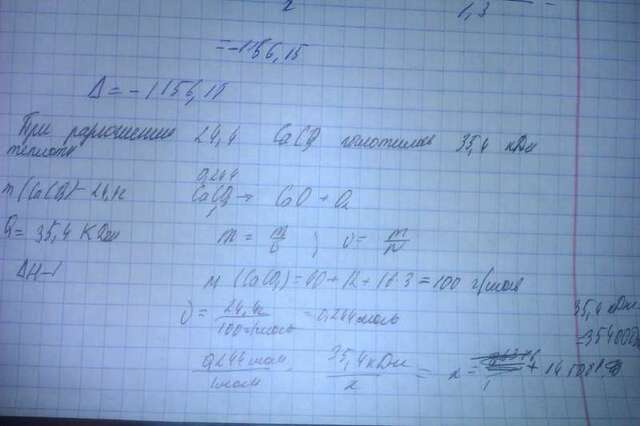 2
1,3 =
= -1156,15
Δ = -1156,15
При разложении 24,4 CaCO₃ поглотилось 35,4 кДж
теплоты
m (CaCO₃) = 24,4г
0,244
CaCO₃ → CaO + O₂
Q = 35,4 КДж
M = m/υ ; υ = m/M
ΔH - ?
M (CaCO₃) = 40 + 12 + 16·3 = 100 г/моль
υ = 24,4г / 100 г/моль = 0,244 моль
35,4 кДж
= 35400Дж
0,244 моль / 1 моль 35,4 кДж / x = x =